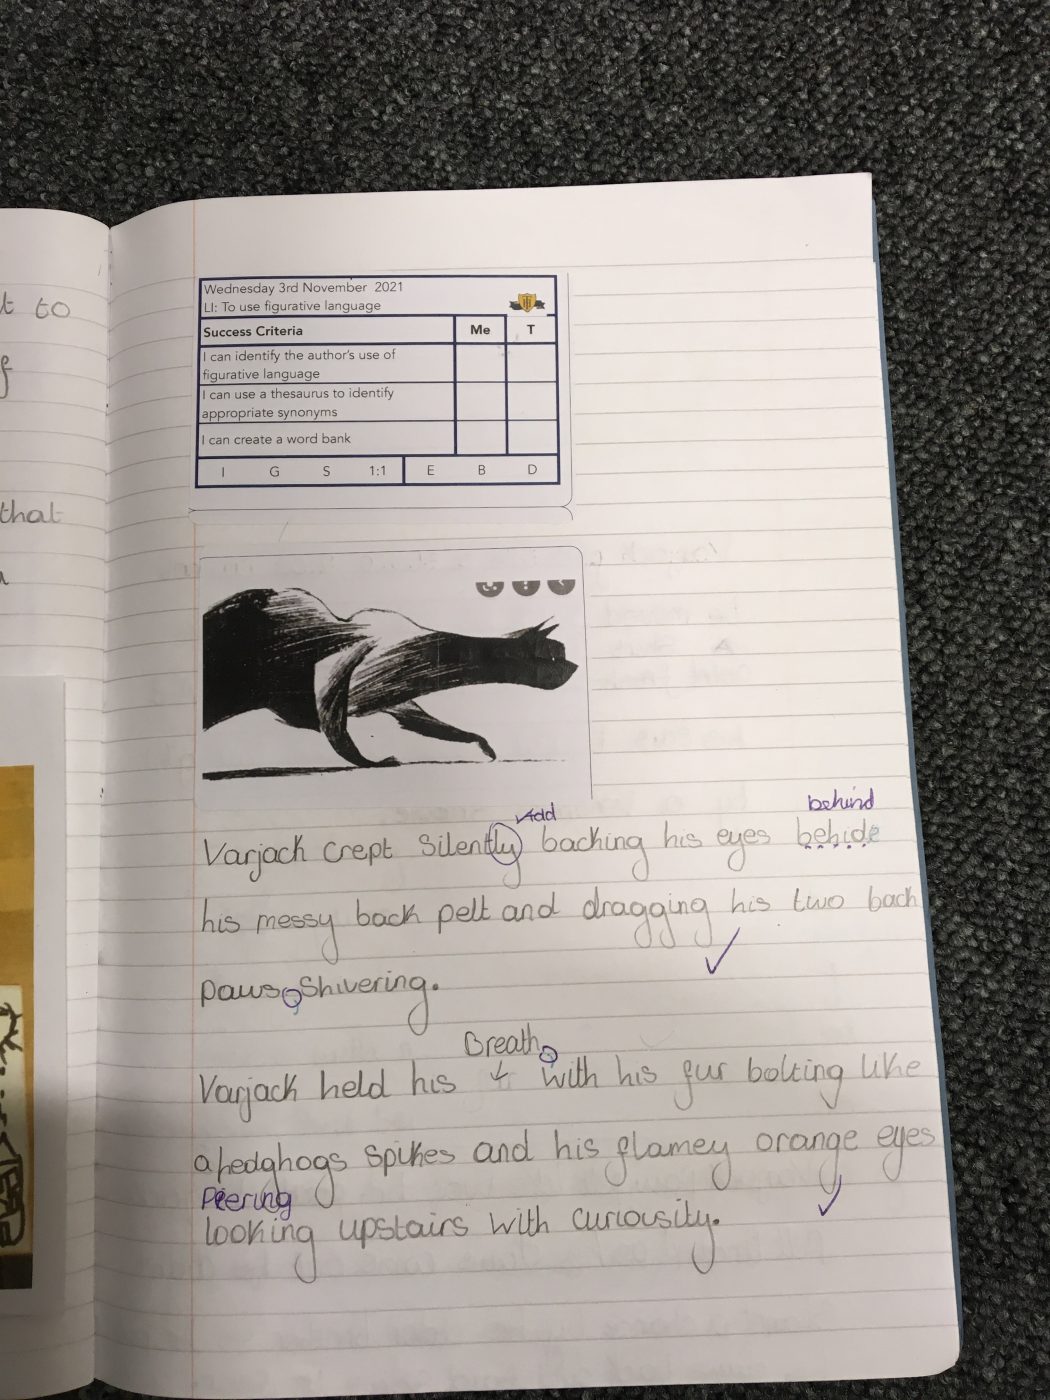 t to
that
Wednesday 3rd November 2021
LI: To use figurative language
Success Criteria Me T
I can identify the author's use of
figurative language
I can use a thesaurus to identify
appropriate synonyms
I can create a word bank
I G S 1:1 E B D
Add behind
Varjack crept silently backing his eyes behide
his messy back pelt and dragging his two back
paws, shivering.
Breath,
Varjack held his with his fur bolting like
a hedghogs spikes and his flamey orange eyes
Peering
looking upstairs with curiousity.